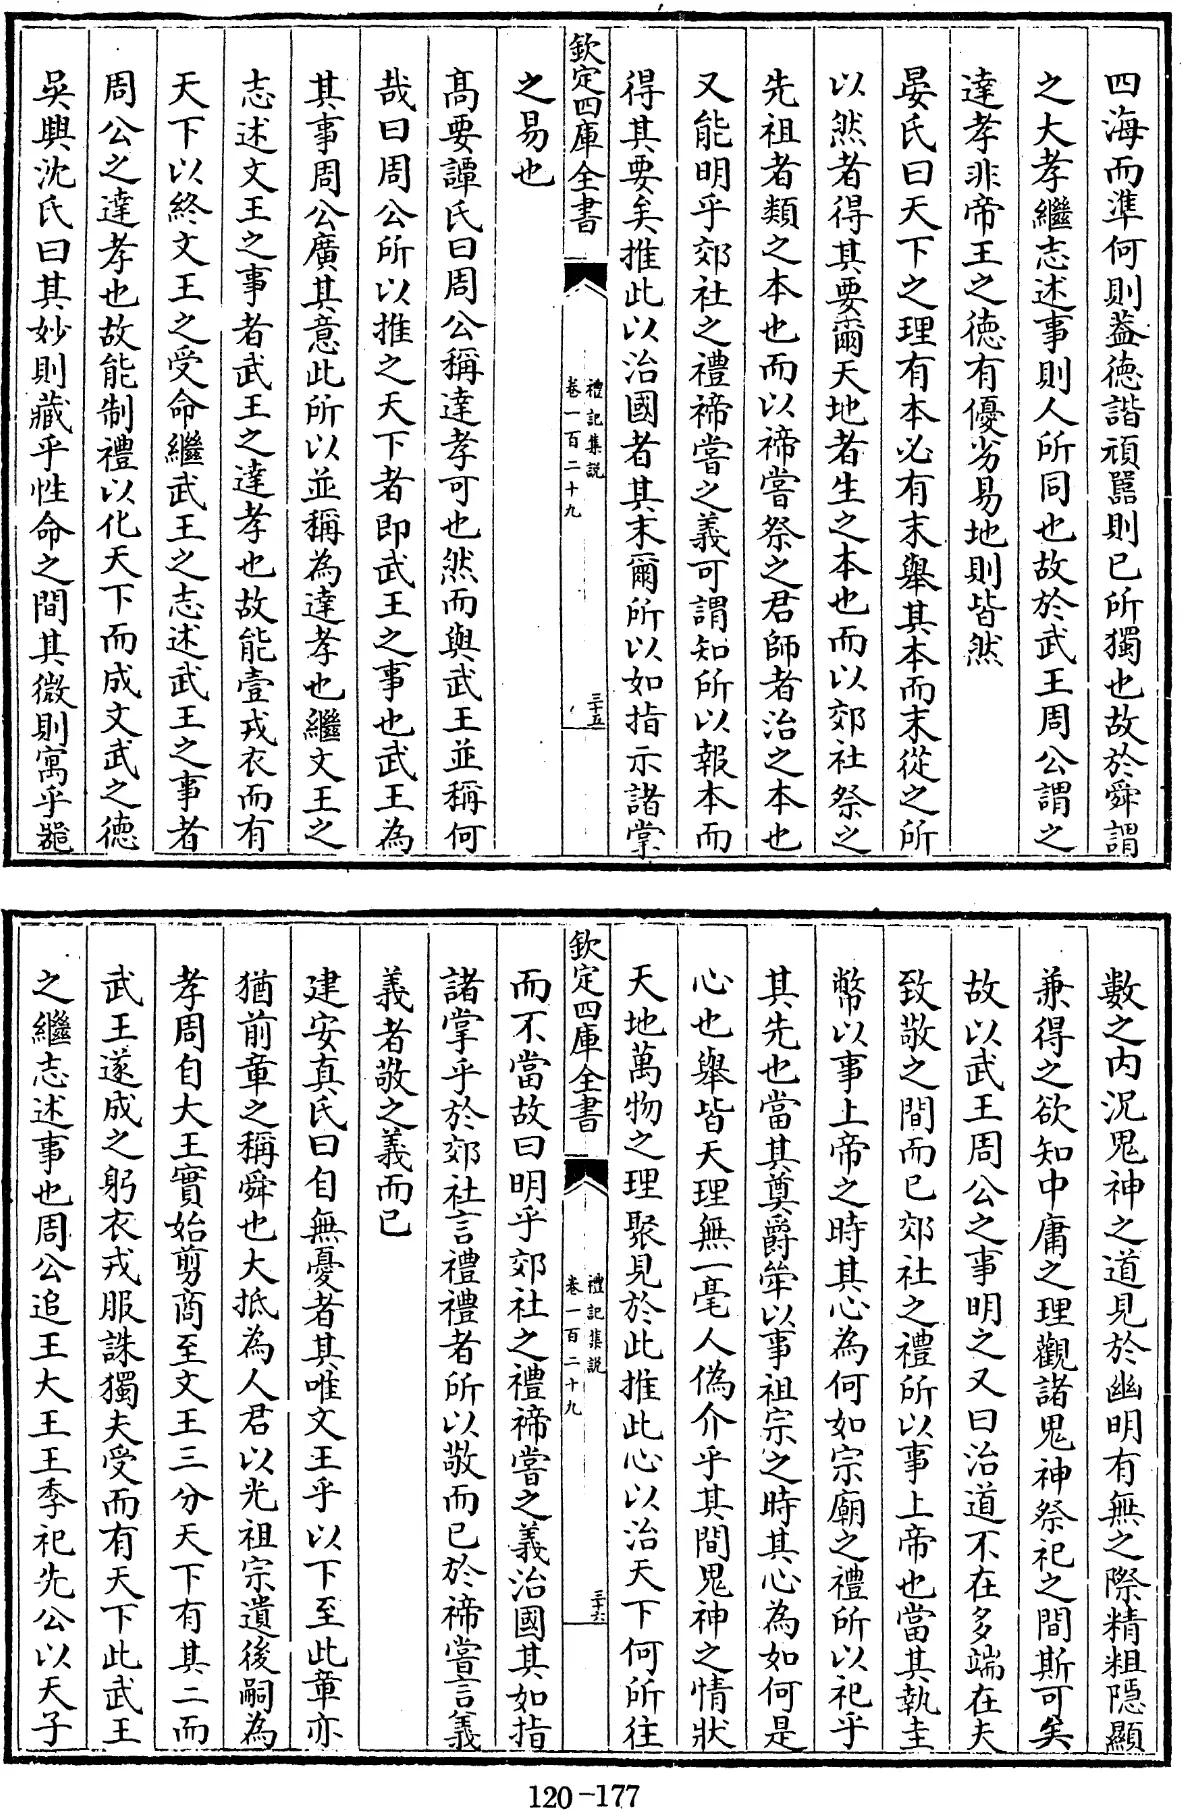 四海而準何則葢徳諧頑嚚則已所獨也故於舜謂
之大孝繼志述事則人所同也故於武王周公謂之
達孝非帝王之徳有優劣易地則皆然
晏氏曰天下之理有本必有末舉其本而末從之所
以然者得其要爾天地者生之本也而以郊社祭之
先祖者類之本也而以禘嘗祭之君師者治之本也
又能明乎郊社之禮禘嘗之義可謂知所以報本而
得其要矣推此以治國者其末爾所以如指示諸掌
欽定四庫全書
禮記集説
卷一百二十九
三十五
之易也
髙要譚氏曰周公稱達孝可也然而與武王並稱何
哉曰周公所以推之天下者即武王之事也武王為
其事周公廣其意此所以並稱為達孝也繼文王之
志述文王之事者武王之達孝也故能壹戎衣而有
天下以終文王之受命繼武王之志述武王之事者
周公之達孝也故能制禮以化天下而成文武之徳
吳興沈氏曰其妙則藏乎性命之間其微則寓乎噐
數之内況鬼神之道見於幽明有無之際精粗隠顯
兼得之欲知中庸之理觀諸鬼神祭祀之間斯可矣
故以武王周公之事明之又曰治道不在多端在夫
致敬之間而已郊社之禮所以事上帝也當其執圭
幣以事上帝之時其心為何如宗廟之禮所以祀乎
其先也當其奠爵斚以事祖宗之時其心為如何是
心也舉皆天理無一毫人偽介乎其間鬼神之情狀
天地萬物之理聚見於此推此心以治天下何所往
欽定四庫全書
禮記集説
卷一百二十九
三十六
而不當故曰明乎郊社之禮禘嘗之義治國其如指
諸掌乎於郊社言禮禮者所以敬而已於禘嘗言義
義者敬之義而已
建安真氏曰自無憂者其唯文王乎以下至此章亦
猶前章之稱舜也大抵為人君以光祖宗遺後嗣為
孝周自大王實始剪商至文王三分天下有其二而
武王遂成之躬衣戎服誅獨夫受而有天下此武王
之繼志述事也周公追王大王王季祀先公以天子
120-177